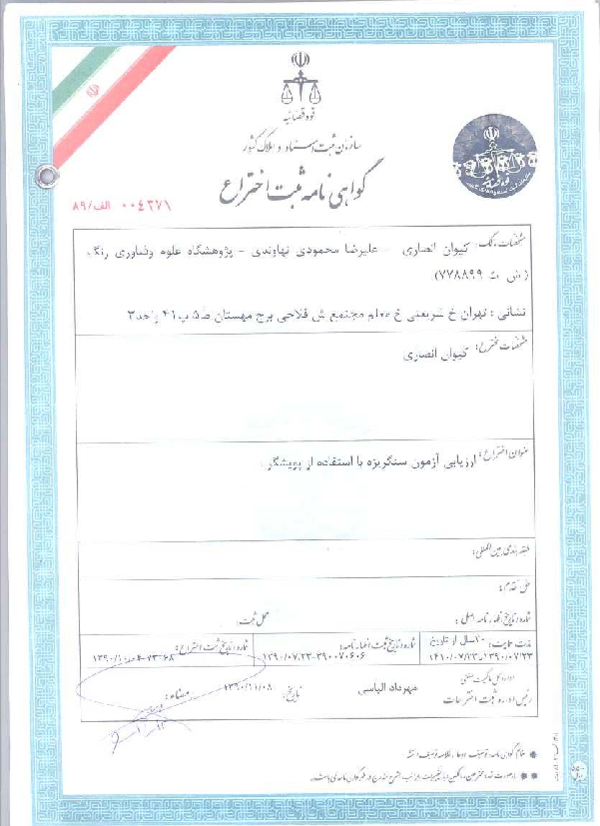 قوه قضائیه
سازمان ثبت اسناد و املاک کشور
گواهی نامه ثبت اختراع
۰۰۴۲۷۱ الف/۸۹
مشخصات مالک: کیوان انصاری - علیرضا محمودی نهاوندی - پژوهشگاه علوم وفناوری رنگ
( ش ث ۷۷۸۸۹۹)
نشانی : تهران خ شریعتی خ معلم مجتمع ش فلاحی برج مهستان ط۵ پ۴۱ واحد۲
مشخصات مخترع: کیوان انصاری
عنوان اختراع: ارزیابی آزمون سنگریزه با استفاده از پویشگر
طبقه بندی بین المللی:
حق تقدم:
شماره و تاریخ اظهار نامه اصلی :
محل ثبت:
مدت حمایت: ۲۰سال از تاریخ
۱۳۹۰/۰۷/۲۳ـ۱۴۱۰/۰۷/۲۳
شماره و تاریخ ثبت اظهارنامه:
۱۳۹۰/۰۷/۲۳-۳۹۰۰۷۰۶۰۶
شماره و تاریخ ثبت اختراع:
اداره کل مالکیت صنعتی
رئیس اداره ثبت اختراعات
مهرداد الیاسی
تاریخ: ۱۳۹۰/۱۱/۰۸
امضاء:
ضمائم گواهی نامه: توصیف، ادعا، خلاصه توصیف، نقشه